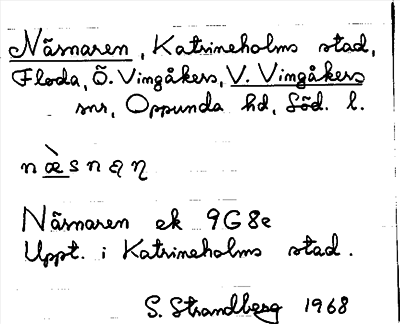 Näsnaren, Katrineholms stad,
Floda, Ö. Vingåkers, V. Vingåkers
snr, Oppunda hd, Söd. l.
n æ̀ s n a ɳ
Näsnaren ek 9G8e
Uppt. i Katrineholms stad.
S. Strandberg 1968